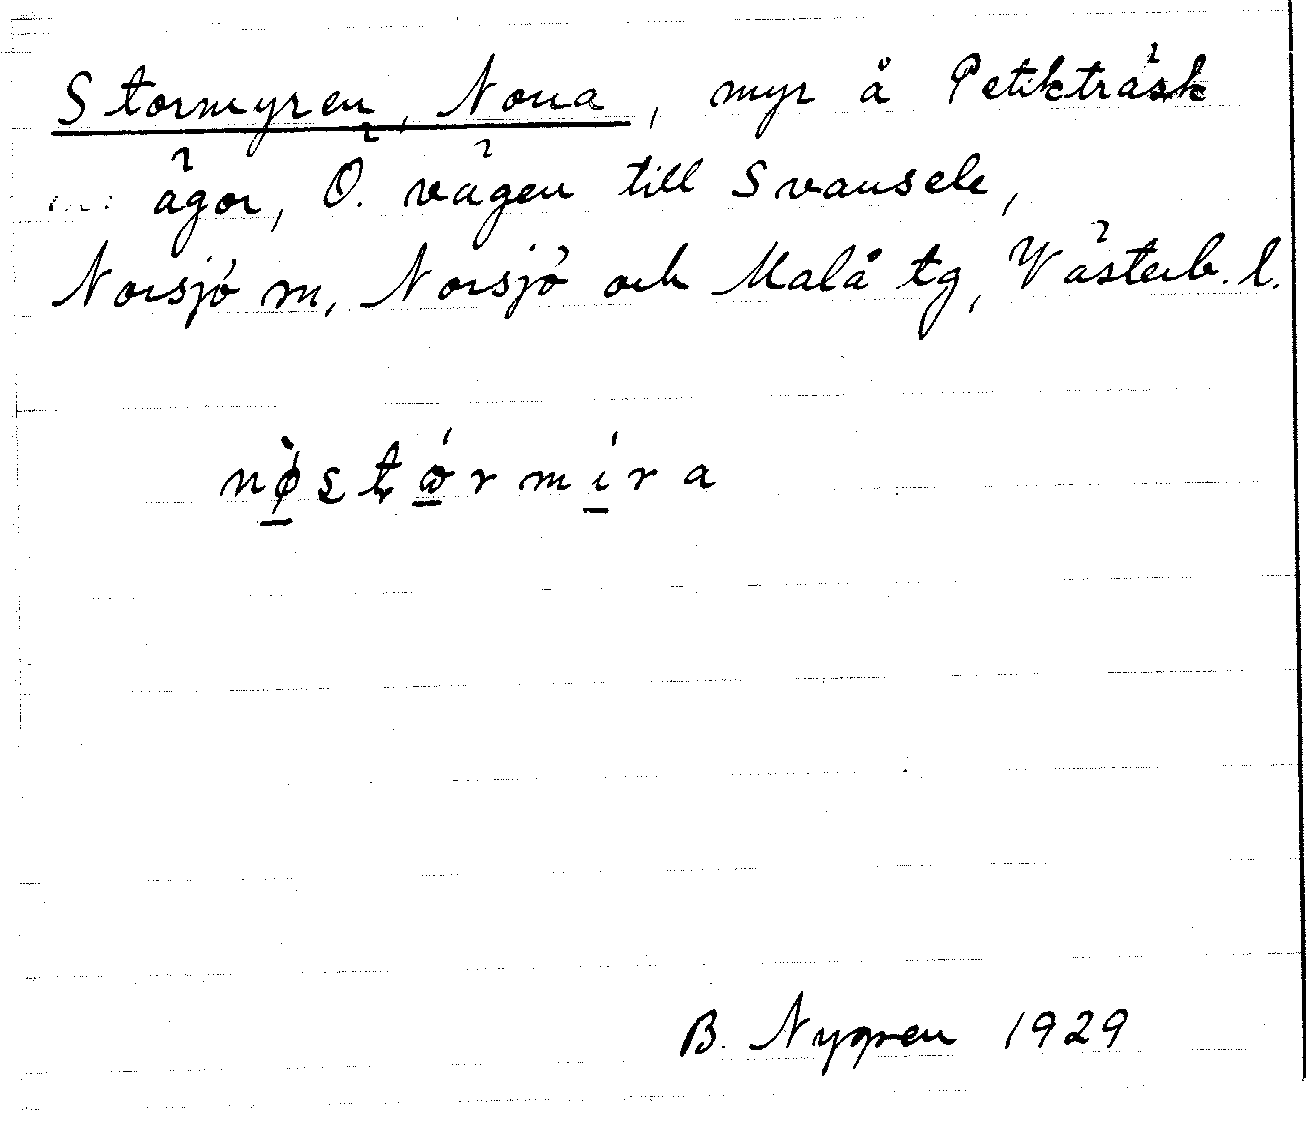 Stormyren, Norra, myr å Petikträsk
ägor, Ö. vägen till Svansele,
Norsjö sn, Norsjö och Malå tg, Västerb. l.
B. Nygren 1929